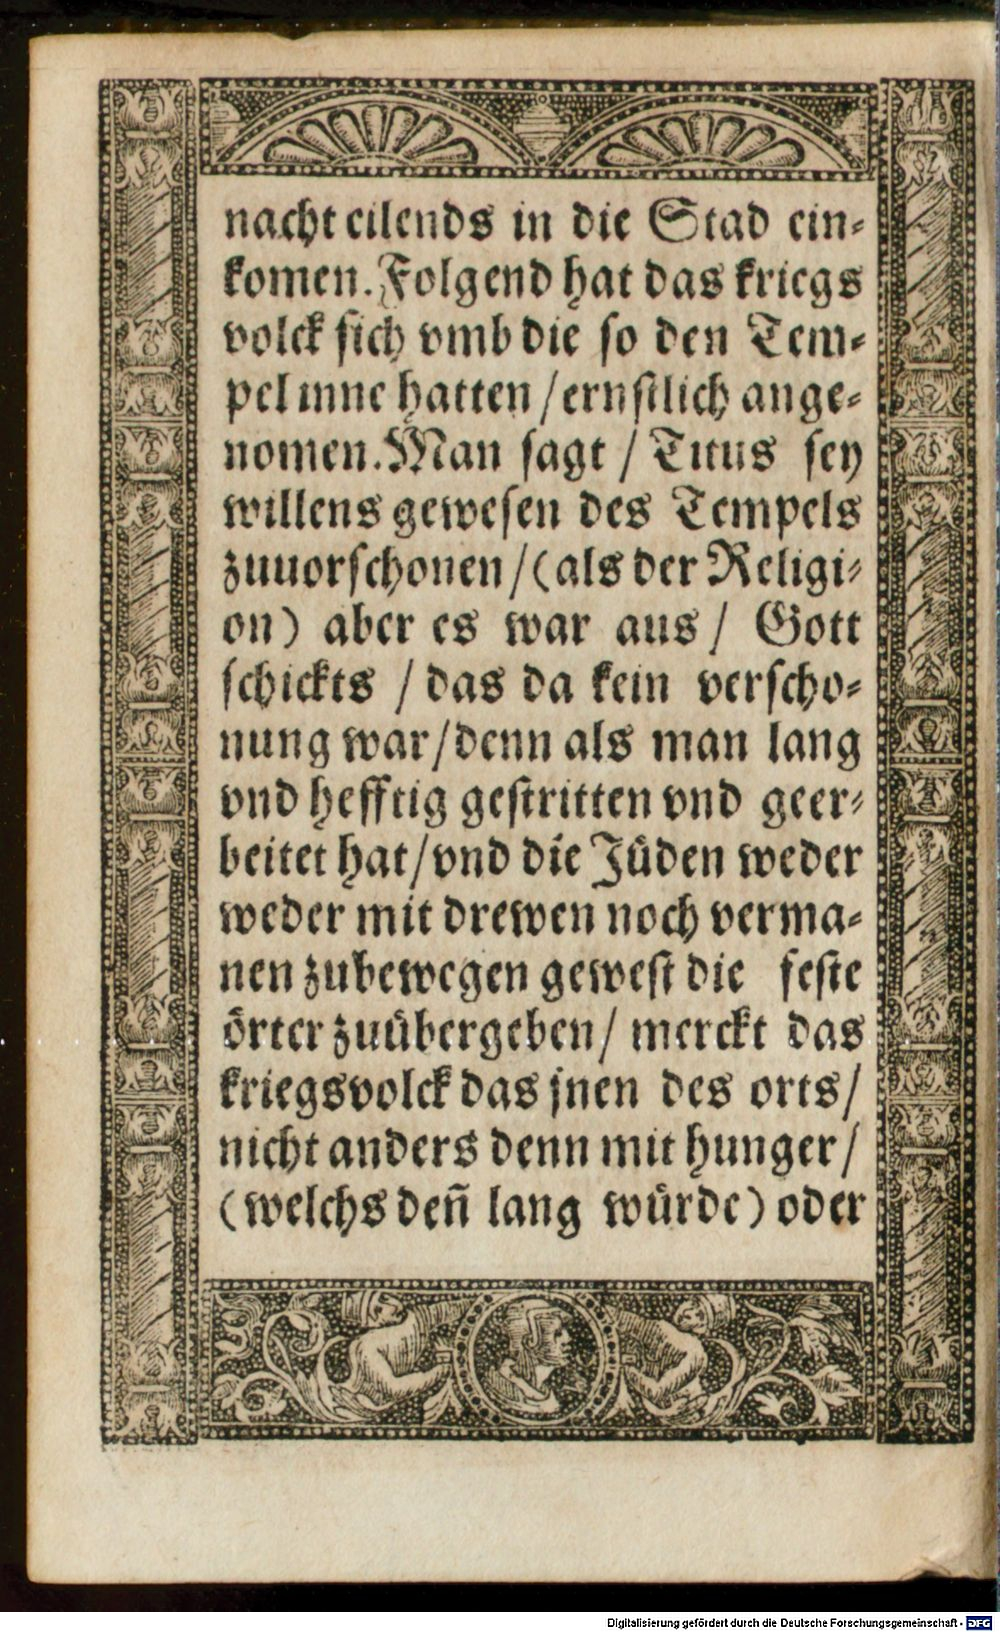 nacht eilends in die Stad ein⸗
komen. Folgend hat das kriegs
volck sich vmb die so den Tem⸗
pel inne hatten / ernstlich ange⸗
nomen. Man sagt / Titus sey
willens gewesen des Tempels
zuuorschonen / (als der Religi⸗
on) aber es war aus / Gott
schickts / das da kein verscho⸗
nung war / denn als man lang
vnd hefftig gestritten vnd geer⸗
beitet hat / vnd die Jüden weder
weder mit drewen noch verma⸗
nen zubewegen gewest die feste
örter zuübergeben / merckt das
kriegsvolck das jnen des orts /
nicht anders denn mit hunger /
(welchs deñ lang würde) oder
Digitalisierung gefördert durch die Deutsche Forschungsgemeinschaft - DFG